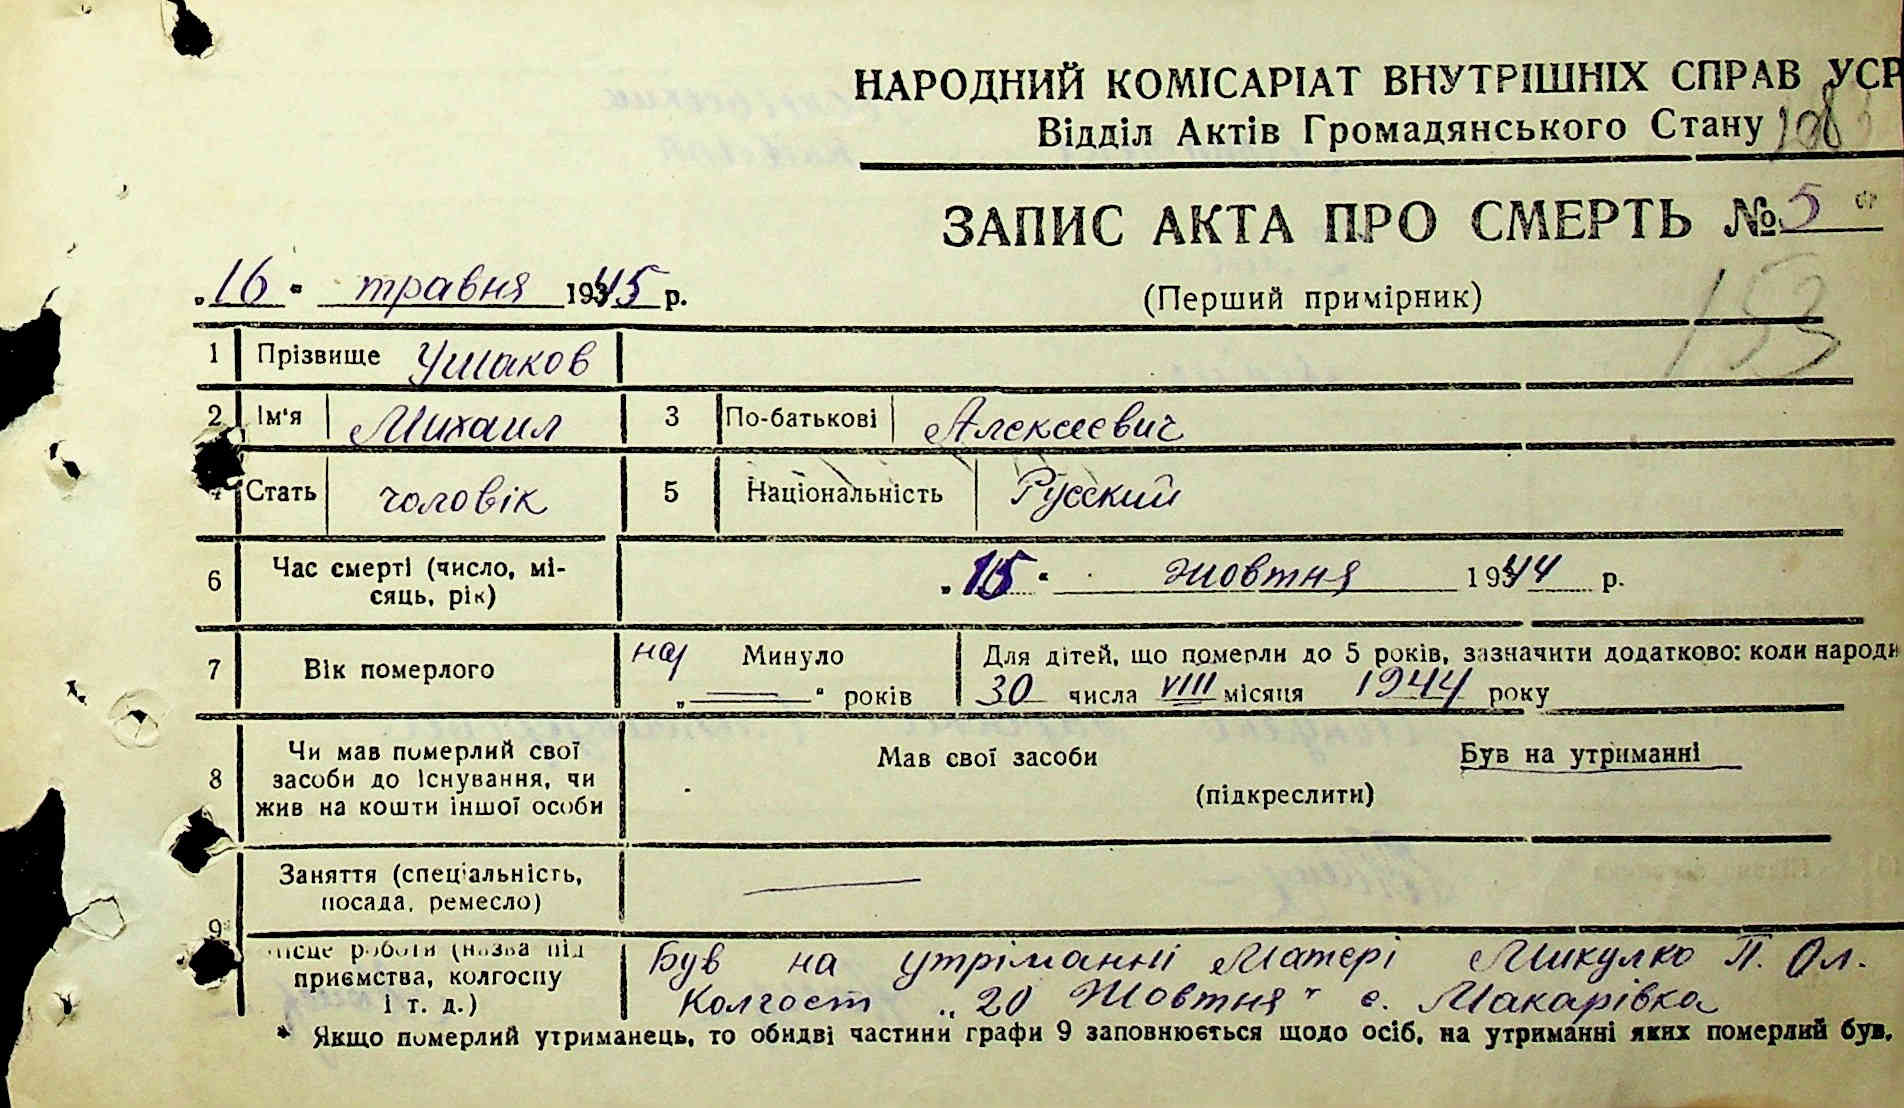 НАРОДНИЙ КОМІСАРІАТ ВНУТРІШНІХ СПРАВ УСР
Відділ Актів Громадянського Стану
ЗАПИС АКТА ПРО СМЕРТЬ № 5
„16“ травня 1945 р.
(Перший примірник)
153
1 Прізвище Ушаков
2 Ім'я Михаил 3 По-батькові Алексеевич
4 Стать чоловік 5 Національність Русский
6 Час смерті (число, мі-
сяць, рік)
„15“ жовтня 1944 р.
7 Вік померлого
Минуло
„——“ років
Для дітей, що померли до 5 років, зазначити додатково: коли народи
30 числа VIII місяця 1944 року
8 Чи мав померлий свої
засоби до існування, чи
жив на кошти іншої особи
Мав свої засоби Був на утриманні
(підкреслити)
9 Заняття (спеціальність,
посада, ремесло)
Місце роботи (назва під
приємства, колгоспу
і т. д.)
Був на утріманні Матері Микулко П. Ол.
Колгосп „20 Жовтня" с. Макарівка
* Якщо померлий утриманець, то обидві частини графи 9 заповнюється щодо осіб, на утриманні яких померлий був.